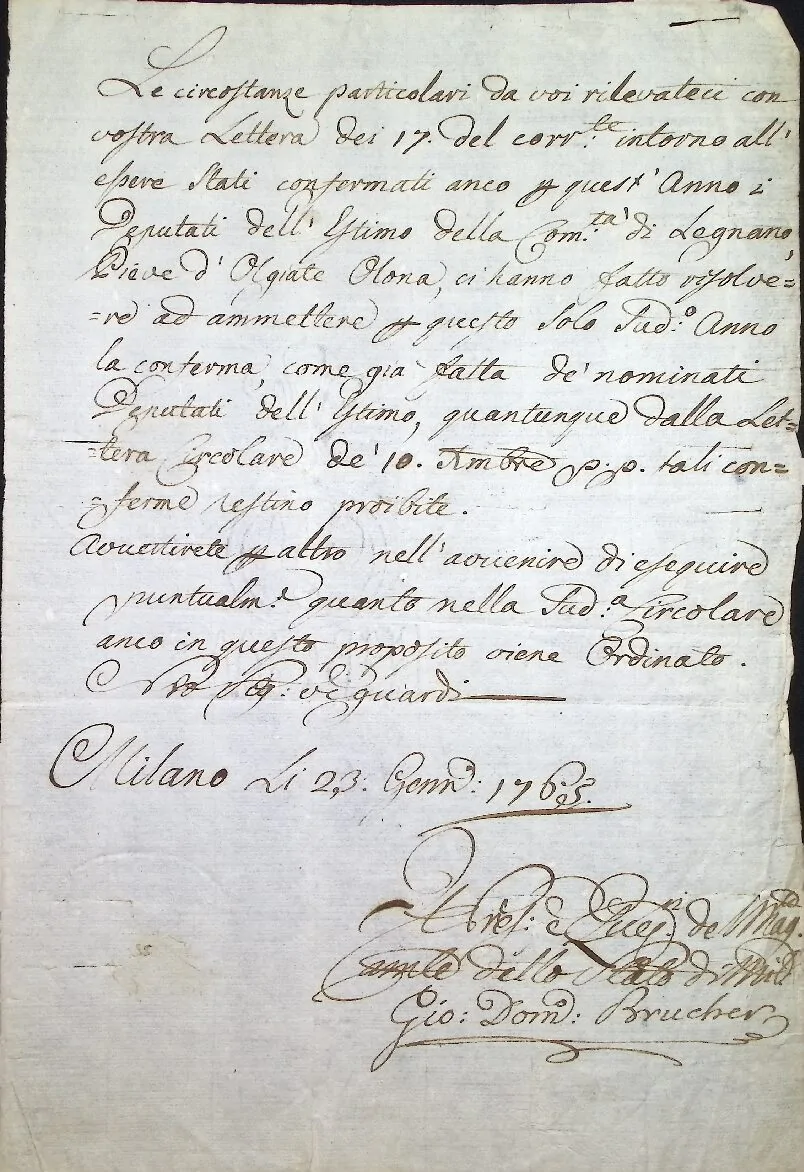 Le circostanze particolari da voi rilevateci con
vostra Lettera dei 17. del corr.te intorno all'
essere stati confermati anco p quest' Anno i
Deputati dell' Estimo della Com.tà di Legnano,
Pieve d' Olgiate Olona, ci hanno fatto risolve=
=re ad ammettere p questo solo sud.o Anno
la conferma, come già fatta de' nominati
Deputati dell' Estimo, quantunque dalla Let=
=tera Circolare de' 10. Xmbre p. p. tali con=
=ferme restino proibite.
Avvertirete p altro nell' avvenire di eseguire
puntualm.e quanto nella sud.a Circolare
anco in questo proposito viene Ordinato.
Nro Sig: vi guardi
Milano Li 23. Genn.o: 1765.
Il Pres: e de Mag.
dello Stato di Mil.o
Gio: Dom.o: Brucher